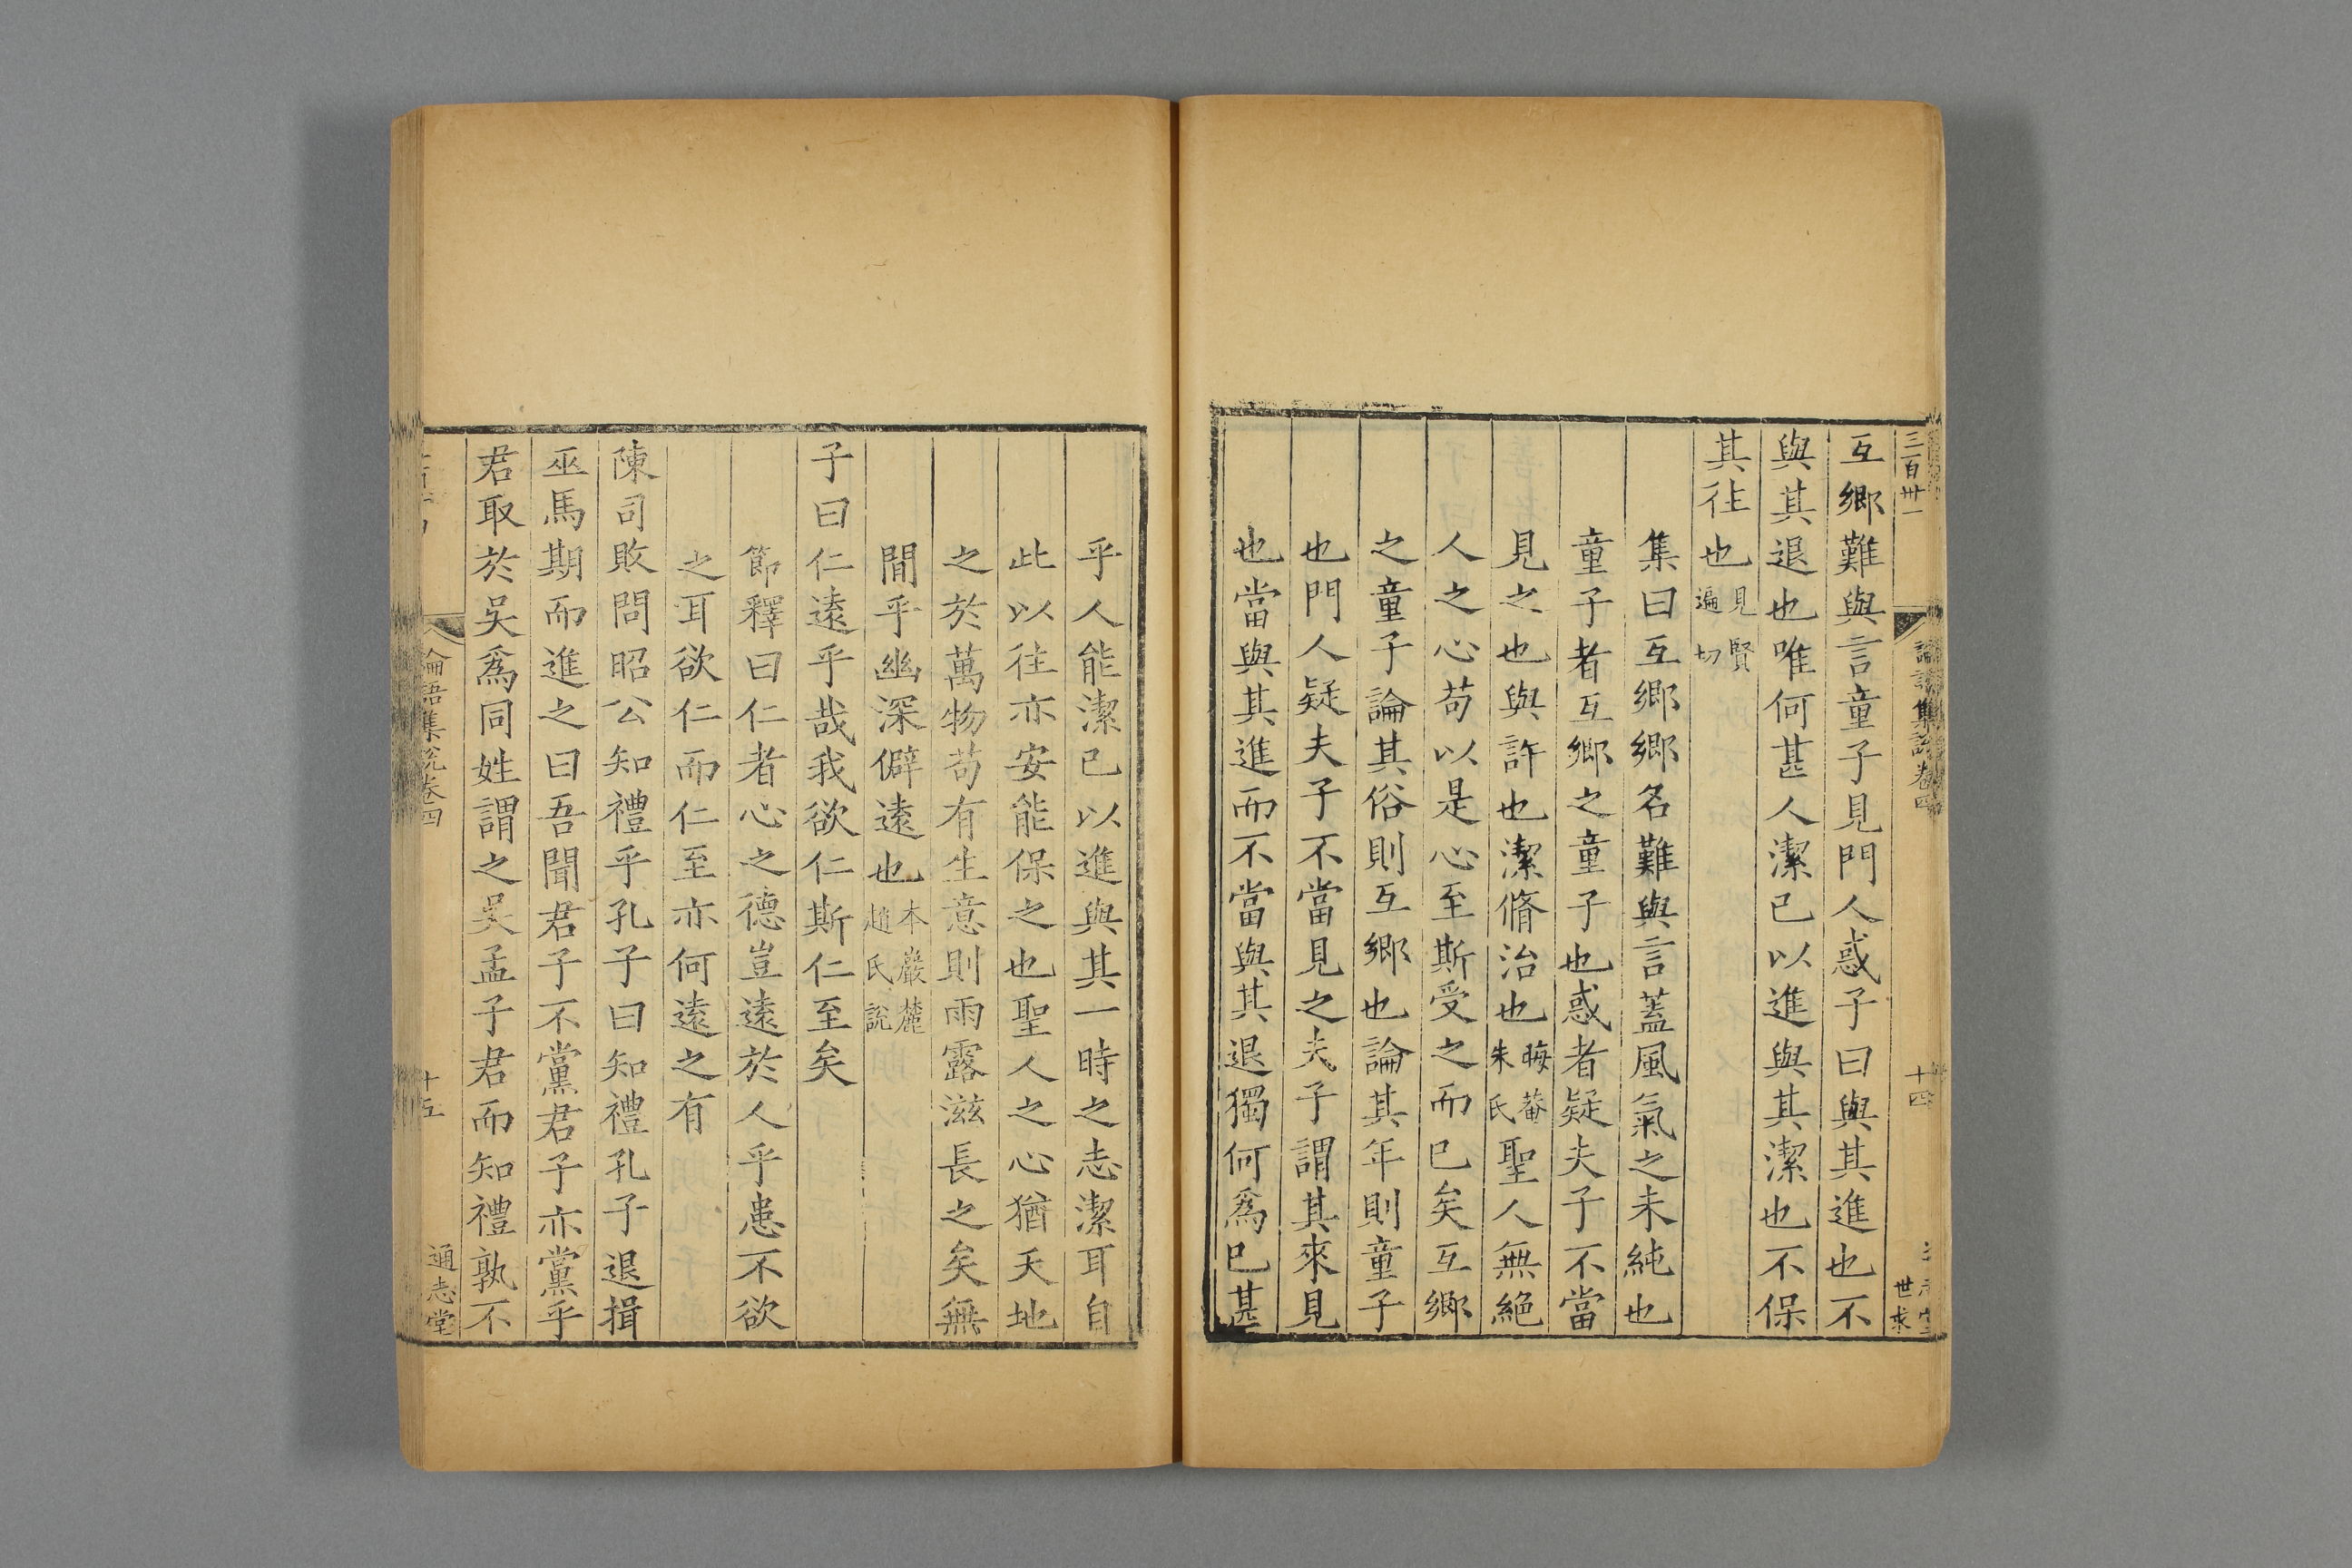 三百卅一
論語集說卷四
十四
世求
互鄉難與言童子見門人惑子曰與其進也不
與其退也唯何甚人潔已以進與其潔也不保
其徃也見賢遍切
集曰互鄉鄉名難與言蓋風氣之未純也
童子者互鄉之童子也惑者疑夫子不當
見之也與許也潔脩治也晦菴朱氏聖人無絕
人之心苟以是心至斯受之而已矣互鄉
之童子論其俗則互鄉也論其年則童子
也門人疑夫子不當見之夫子謂其來見
也當與其進而不當與其退獨何爲已甚
乎人能潔已以進與其一時之志潔耳自
此以往亦安能保之也聖人之心猶天地
之於萬物苟有生意則雨露滋長之矣無
間乎幽深僻遠也本巖麓趙氏說
子曰仁遠乎哉我欲仁斯仁至矣
節釋曰仁者心之德豈遠於人乎患不欲
之耳欲仁而仁至亦何遠之有
陳司敗問昭公知禮乎孔子曰知禮孔子退揖
巫馬期而進之曰吾聞君子不黨君子亦黨乎
君取於吳爲同姓謂之吳孟子君而知禮孰不
論語集說卷四
十五
通志堂